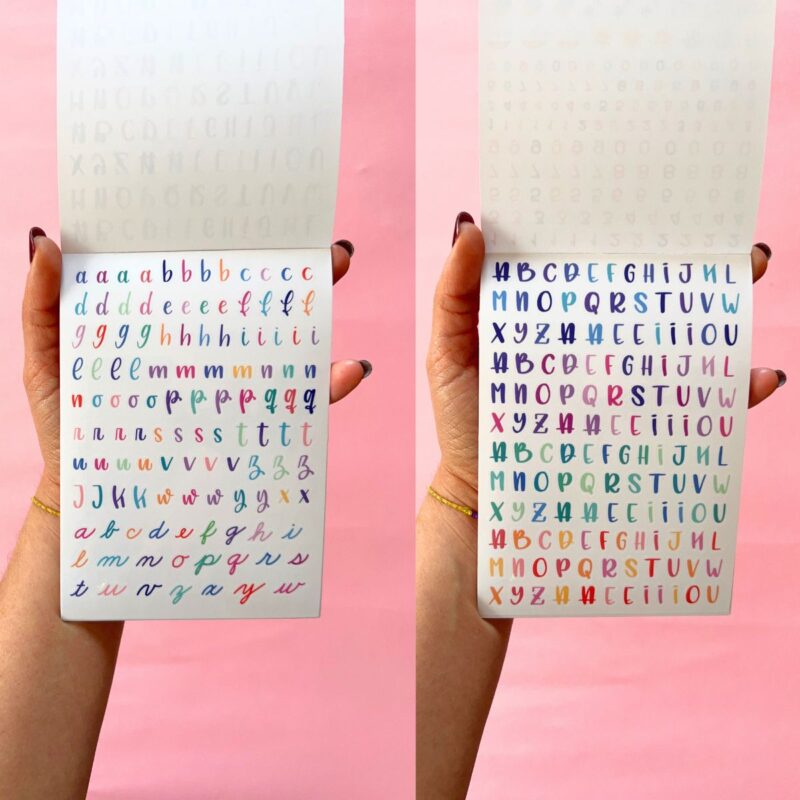 a a a a b b b b c c c c
d d d d e e e e f f f f
g g g g h h h h i i i i i
l l l l m m m m n n n
n o o o o p p p p q q q
r r r r s s s s t t t t
u u u u v v v v z z z
J J k k w w w y y x x
a b c d e f g h i
l m n o p q r s
t u v z x y w
A B C D E F G H i J K L
M N O P Q R S T U V W
X Y Z A A E E i i i O U
A B C D E F G H i J K L
M N O P Q R S T U V W
X Y Z A A E E i i i O U
A B C D E F G H i J K L
M N O P Q R S T U V W
X Y Z A A E E i i i O U
A B C D E F G H i J K L
M N O P Q R S T U V W
X Y Z A A E E i i i O U